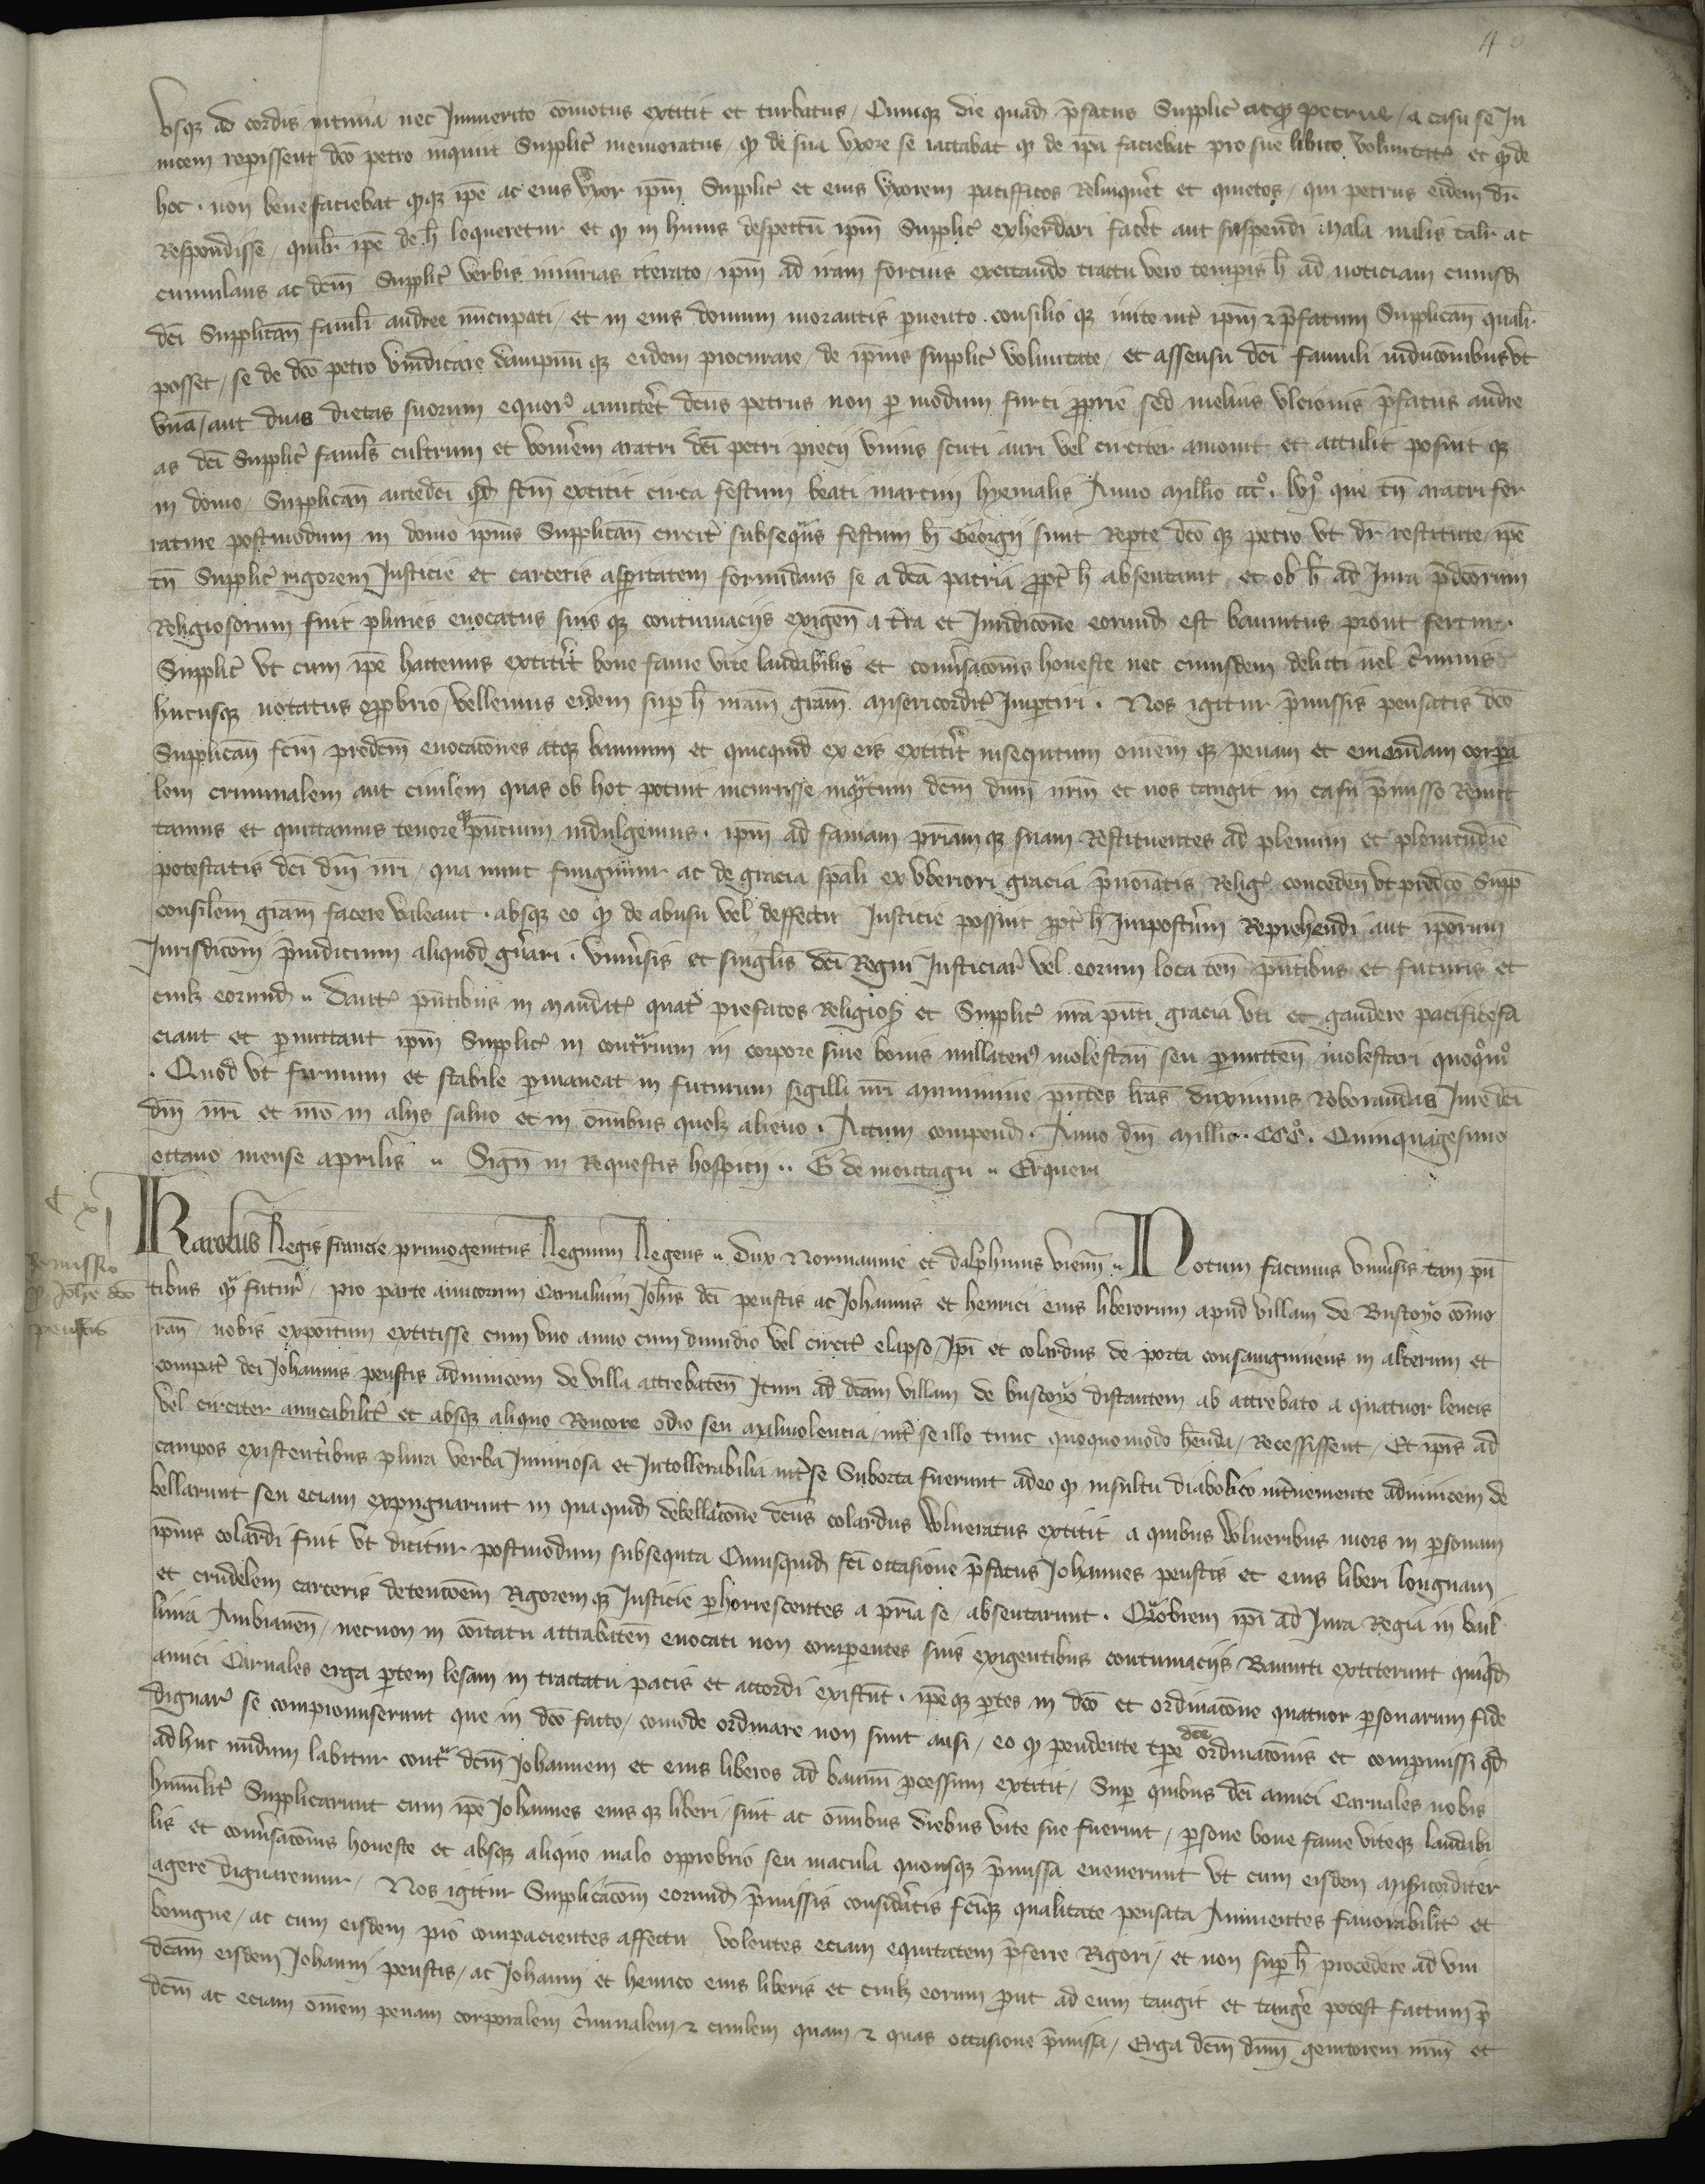 40
Usq3 ad cordis intima nec Jmmerito cōmotus extitit et turbatus / Cumq3 die quad p̄fatus Supplic̄ atq3 petrus / a casu se In
uicem repissent dc̄o petro inquit Supplic̄ memoratus / qd de sua uxore se iactabat qd de ip̄a faciebat pro sue libito voluntatꝭ et qd de
hoc . non bene faciebat qq3 ip̄e ac eius uxor ip̄m Supplic̄ et eius uxorem pacifficos Relinquēt et quietos / qui petrus eidem dr̄
Respondisse / qualr̄ ip̄e de h̄ loqueretur et qd in huius despectū ip̄m Supplic̄ exherdari facēt aut suspendi mala malis talr̄ ac
cumulans ac dcm̄ Supplic̄ verbis iniurias iterato / ip̄m ad iram forcius excitando tractu vero temporis h̄ ad noticiam cuiusd
dci Supplicañ famuli andree nūcupati / et in eius domum morantis puento . consilio q3 inito int̄ ip̄m & p̄fatum Supplicañ qualr̄
posset / se de dc̄o petro vindicare dampnū q3 eidem procurare / de ip̄ius supplic̄ voluntate / et assensu dci famuli inducōnibus ut
unā / aut duas dietas suorum equorꝭ amittēt dcūs petrus non p modum furti pprie sed melius ulcionis p̄fatus andre
as dci Supplic̄ famuls̄ cultrum et vomēm aratri dci petri precii unius scuti auri vel circiter amouit et attulit posuit q3
in domo / Supplicañ antedci qd fcm̄ extitit circa festum beati martini hyemalis Anno millīo cccº . lvjº que tn̄ aratri fer
rature postmodum in domo ip̄ius Supplicañ circit̄ subseq̄ns festum b̄i Georgii sunt Repte dc̄o q3 petro ut dr̄ restitute / ip̄e
tn̄ Supplic̄ rigorem Justicie et carceris aspitatem formidans se a dc̄a patria ppt̄ h̄ absentauit et ob h̄ ad Jura p̄dcōrum
Religiosorum fuit pluries euocatus suis q3 contumaciis exigeñ a t̄ra et Juridicōne eorund est bannitus prout fertur .
Supplic̄ ut cum ip̄e hactenus extitit̄ bone fame vite laudabilis et conūsacōnis honeste nec cuiusdem delicti uel c̄minis
hucusq3 notatus opp̄brio / vellemus eidem sup h̄ nr̄am grām misericordit̄ Jmptiri . Nos igitur p̄missis pensatis dc̄o
Supplicañ fcm̄ predcm̄ euocacōnes atq3 bannum et quicquid ex eis extitit̄ insequtum omēm q3 penam et emendam corpa
lem criminalem aut ciuilem quas ob hoc potuit incurrisse inq̄ntum dcm̄ dn̄m nr̄m et nos tangit in casu p̄misso Remit
tamus et quittamus tenore q3 p̄ncium indulgemus . ip̄m ad famam pr̄iam q3 suam Restituentes ad plenum et plenitudīe
potestatis dci dn̄i nr̄i / qua nunc fungimur ac de gracia sp̄ali ex uberiori gracia p̄noīatis Religꝭ conceden̄ ut predc̄o Supp
consilem grām facere valeant . absq3 eo qd de abusu vel deffectu Justicie possint ppt̄ h̄ Jmpost̄um Reprehendi aut ip̄orum
Jurisdicōni p̄iudicium aliquod gn̄ari . Uniūsis et singlis̄ dci Regni Justiciar̄ vel eorum loca ten̄ p̄ntibus et futuris et
cuil3 eorund .. dantꝭ p̄ntibus in mandatꝭ quat̄ prefatos Religios et Supplic̄ nr̄a p̄nti gracia uti et gaudere pacifice fa
ciant et pmittant ip̄m Supplic̄ in contrium in corpore siue bonis nullaten9 molestan̄ seu pmitten̄ molestari quoqºmº
. Quod ut firmum et stabile pmaneat in futurum sigilli nr̄i munimine p̄ntes lr̄as duximus Roborandas Jure dci
dn̄i nr̄i et nr̄o in aliis saluo et in om̄ibus quol3 alieno . Actum compend . Anno dn̄i millīo . CCCº . Quinquagesimo
octauo mense aprilis .. Sign̄ in Requestis hospicii .. G de montagu .. Erqueri
C xj
Remissio
p Johē dc̄o
peustis
Karolus Regis francie primogenitus Regnum Regens .. dux Normannie et dalphinus vienn̄ .. Notum facimus uniūsis tam p̄n
tibus q̄ futur̄ / pro parte amicorum Carnalium Joh̄is dci peustis ac Johannis et henrici eius liberorum apud villam de Buscoyo cōmo
ran̄ / nobis expoitum extitisse cum uno anno cum dimidio vel circit̄ elapso / Jp̄i et colardus de porta consanguineus in alterum et
compat̄ dci Johannis peustis adinuicem de villa attrebaten̄ Jturi ad dcām villam de buscoyo distantem ab attrebato a quatuor leucis
vel circiter amicabilit̄ et absq3 aliquo Rencore odio seu maliuolencia / int̄ se illo tunc quoquomodo hēnda / Recessissent / Et ip̄is ad
campos existentibus plura verba Jniuriosa et Jntollerabilia int̄ se Suborta fuerunt adeo qd insultu diabolico int̄ueniente adinuicem de
bellarunt seu eciam expugnarunt in qua quid debellacōne dcūs colardus Wlneratus extitit / a quibus Wlneribus mors in psonam
ip̄ius colardi fuit ut dicitur postmodum subsequta Cuiusquid fci occasione p̄fatus Johannes peustis et eius liberi longuam
et crudelem carceris detencōem Rigorem q3 Justicie phorrescentes a pr̄ia se / absentarunt . Quobrem ip̄i ad Jura Regia in bail
liuia Ambianen̄ / necnon in cōitatu attrabaten̄ euocati non comperentes suis exigentibus contumaciis Banniti extiterunt quiqd
amici Carnales erga ptem lesam in tractatu pacis et accordi existūt . ip̄eq3 ptes in dc̄o et ordinacōne quatuor psonarum fide
dignar̄ se compromiserunt que in dc̄o facto / comode ordinare non sunt ausi / eo qd pendente tp̄e dc̄e ordinacōnis et compmissi qd
adhuc nūdum labitur cont̄ dcm̄ Johannem et eius liberos ad bannū pcessum extitit / Sup quibus dci amici Carnales nobis
humilit̄ Supplicarunt cum ip̄e Johannes eius q3 liberi / sint ac om̄ibus diebus vite sue fuerint / psone bone fame viteq3 laudabi
lis et conūsacōnis honeste et absq3 aliquo malo opprobrio seu macula quousq3 p̄missa euenerunt ut cum eisdem misericorditer
agere dignaremur / Nos igitur Supplicacōni eorund p̄missis considatis fciq3 qualitate pensata Annuentes fauorabilit̄ et
benigne / ac cum eisdem pio compacientes affectu volentes eciam equitatem p̄ferre Rigori / et non sup h̄ procedere ad vin
dcām eisdem Johanni peustis / ac Johanni et henrico eius liberis et cuil3 eorum put ad eum tangit et tange potest factum p̄
dcm̄ ac eciam omēm penam corporalem c̄minalem & ciuilem quam & quas occasione p̄missa / Erga dcm̄ dn̄m genitorem nr̄m et